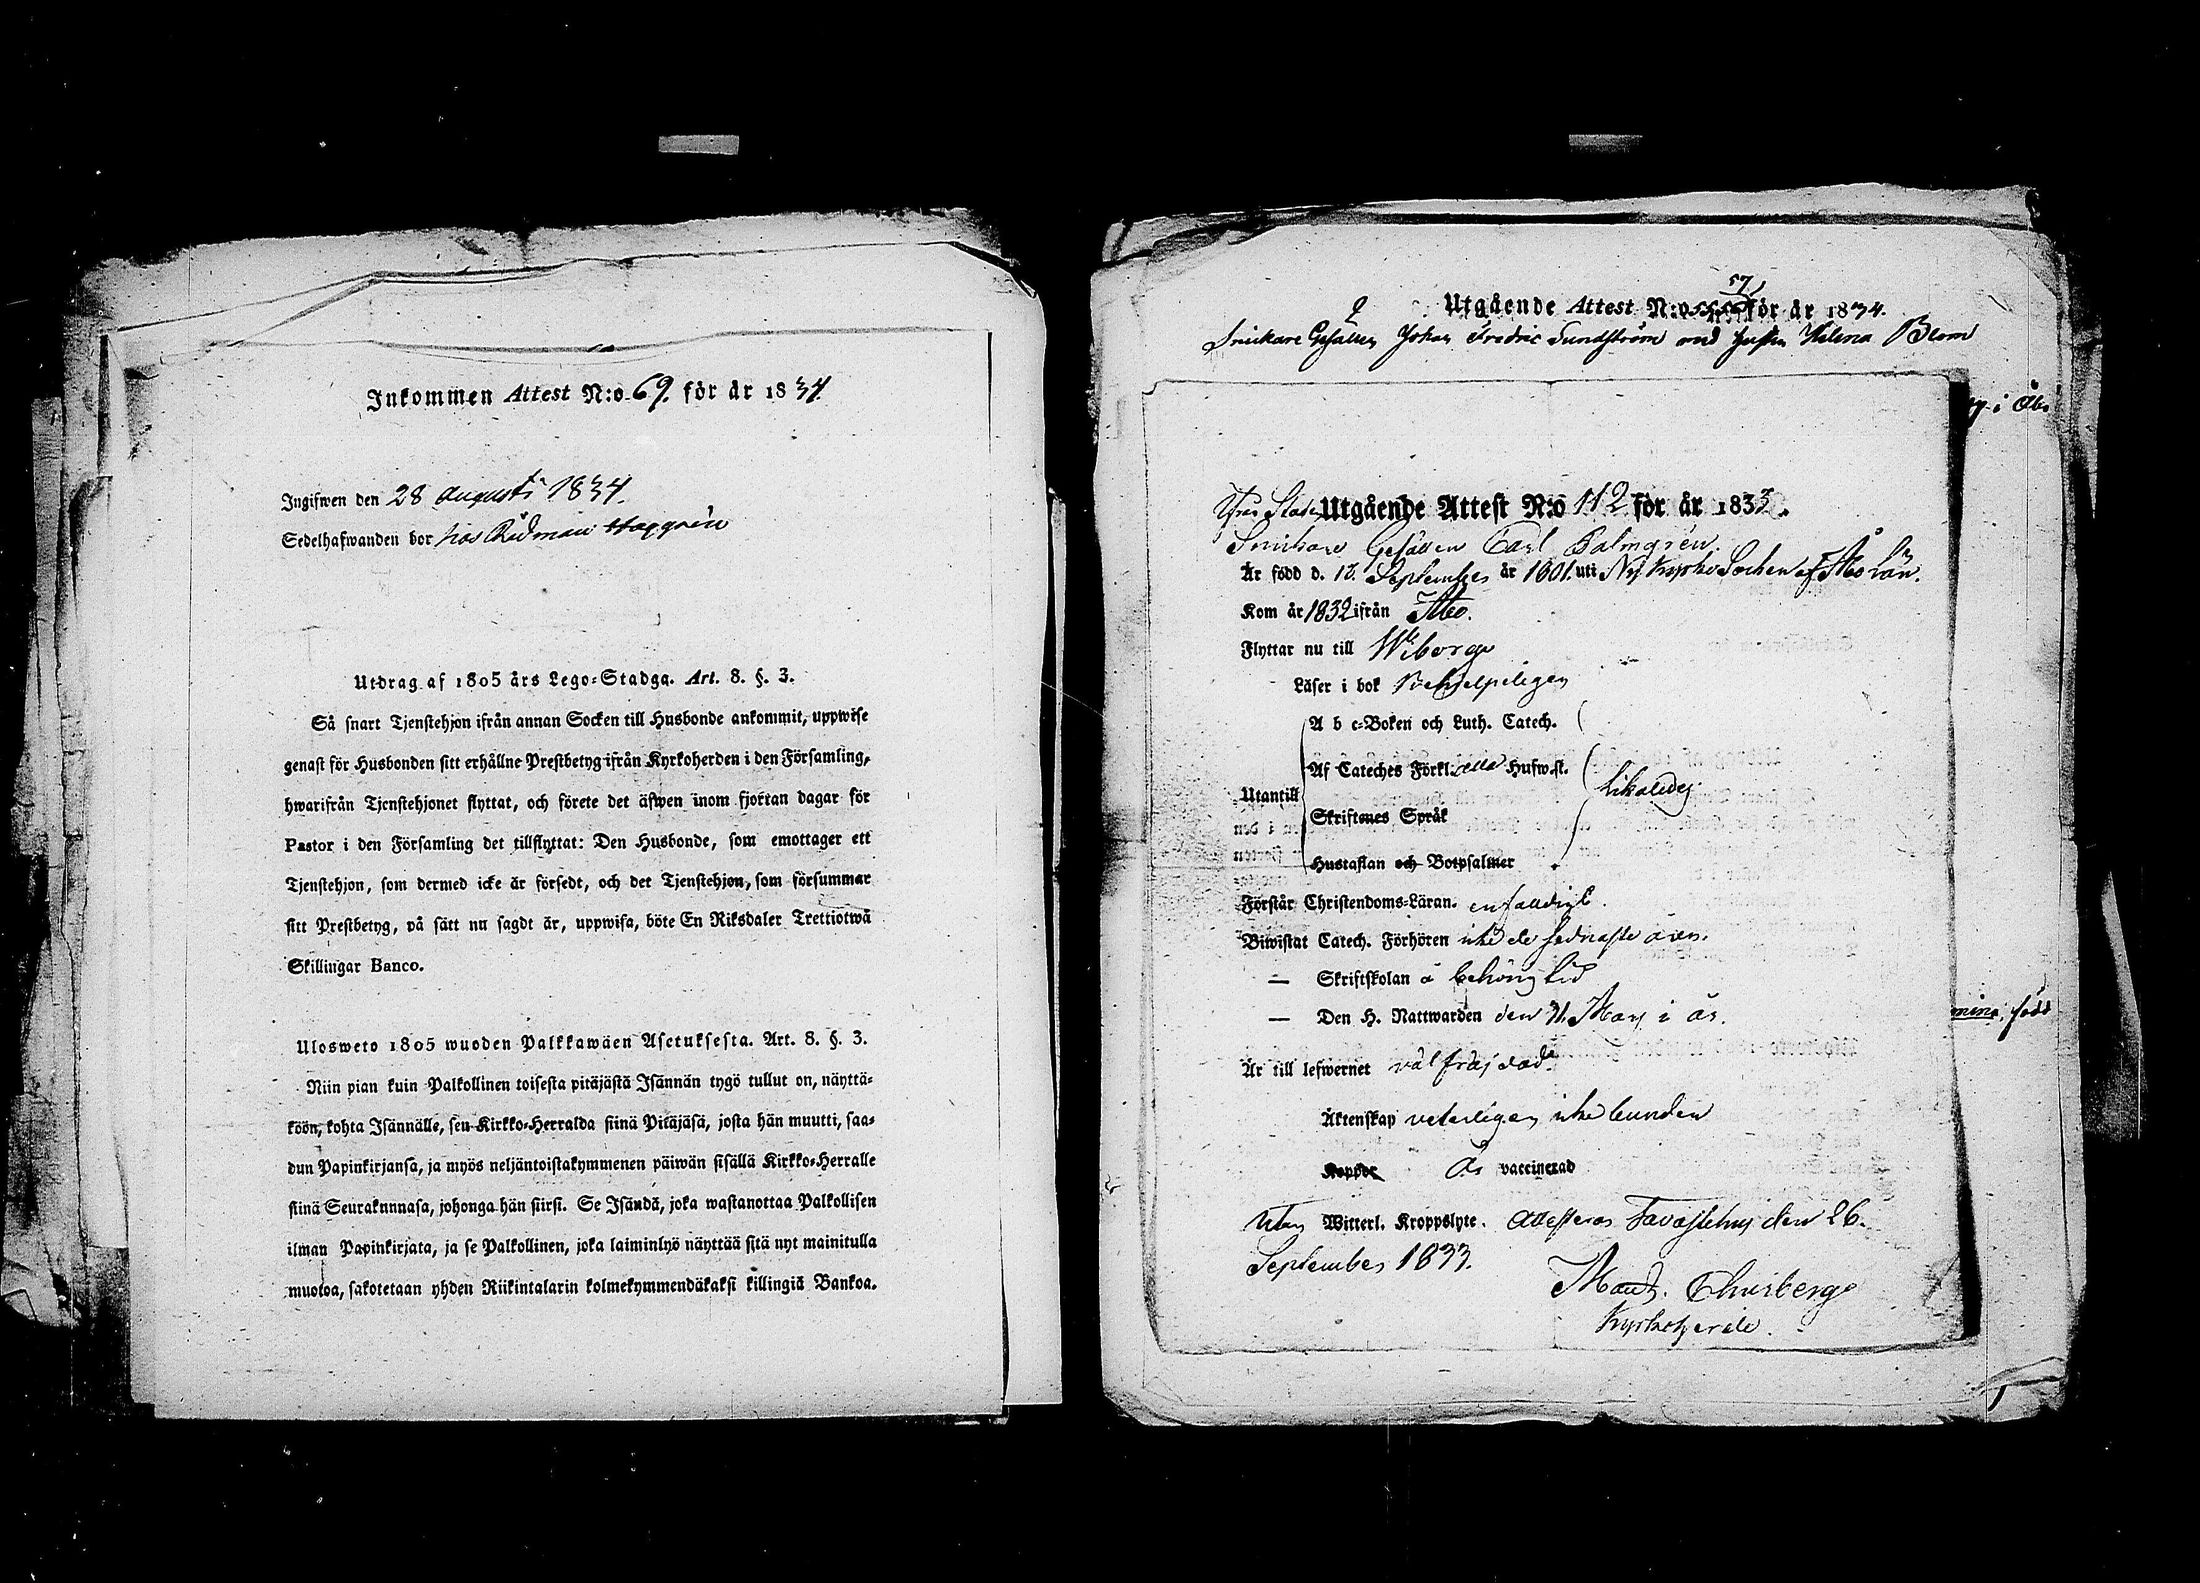 Inkommen Attest N:o 69. för år 1834
Ingifwen den 28 augusti 1834.
Sedelhafwanden bor hos Rådman Haggrén
Utdrag af 1805 års Lego-Stadga. Art. 8. §. 3.
Så snart Tjenstehjon ifrån annan Socken till Husbonde ankommit, uppwise
genast för Husbonden sitt erhållne Prestbetyg ifrån Kyrkoherden i den Församling,
hwarifrån Tjenstehjonet flyttat, och förete det äfwen inom fjortan dagar för
Pastor i den Församling det tillflyttat: Den Husbonde, som emottager ett
Tjenstehjon, som dermed icke är försedt, och det Tjenstehjon, som försummar
sitt Prestbetyg, på sätt nu sagdt är, uppwisa, böte En Riksdaler Trettiotwå
Skillingar Banco.
Ulosweto 1805 wuoden Palkkawäen Asetuksesta. Art. 8. §. 3.
Niin pian kuin Palkollinen toisesta pitäjästä Isännän tygö tullut on, näyttä-
köön, kohta Isännälle, sen Kirkko-Herralda siinä Pitäjäsä, josta hän muutti, saa-
dun Papinkirjansa, ja myös neljäntoistakymmenen päiwän sisällä Kirkko-Herralle
siinä Seurakunnasa, johonga hän siirsi. Se Isändä, joka wastanottaa Palkollisen
ilman Papinkirjata, ja se Palkollinen, joka laiminlyö näyttää sitä nyt mainitulla
muotoa, sakotetaan yhden Riikintalarin kolmekymmendäkaksi killingiä Bankoa.
57
Utgående Attest N:o för år 1834.
Snickare Gesällen Johan Fredric Sundström med Hustru Helena Blom
i Åbo
Utgående Attest N:o 112 för år 1833.
Snickare Gesällen Carl Palmgrén.
Är född d. 18. September år 1801. uti Nykyrko Sochen af Åbo län.
Kom år 1832 ifrån Åbo.
Flyttar nu till Wiborg
Läser i bok Behjelpeligen
A b c-Boken och Luth. Catech.
Af Cateches Förkl. alla Hufw.st.
Utantill likaledes
Skriftenes Språk
Hustaflan och Botpsalmer
Förstår Christendoms-Läran. enfaldigt.
Biwistat Catech. Förhören icke de sednaste åren.
— Skriftskolan å behörig tid
— Den H. Nattwarden den 21. Mars i år.
mina, född
Är till lefwernet väl frejdad.
Äktenskap veterligen icke bunden
Koppor Är vaccinerad
Utan Witterl. Kroppslyte. Attesteras Tavastehus den 26.
September 1833.
Kyrkoherde.